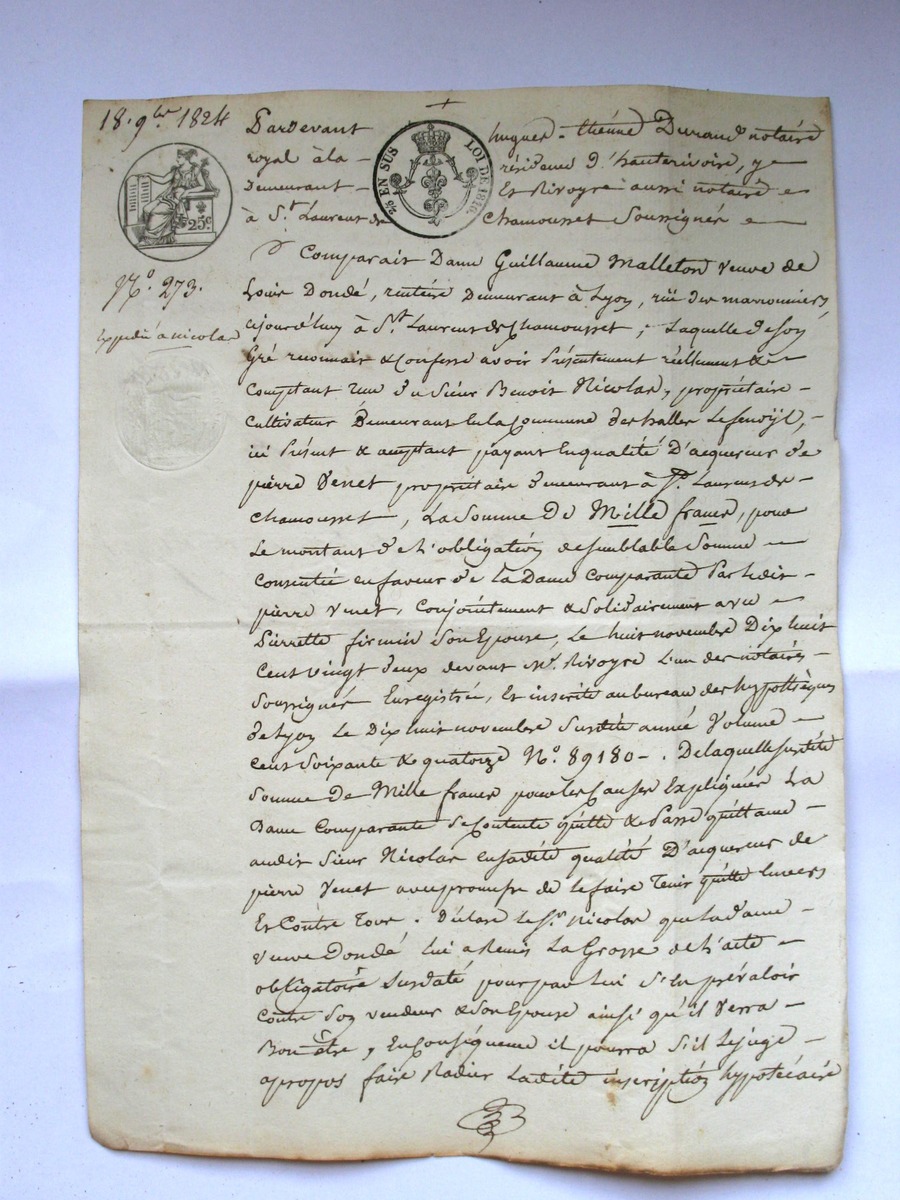 18. 9bre 1824
25c.
N.o 273.
Expédié à nicolas
2/5 EN SUS LOI DE 1816.
Pardevant hugues-thiénne Durand notaire
royal à la résidence d'hauterivoire, y
Demeurant Et Rivoyre aussi notaire
à St. Laurent de Chamousset Soussignés
Comparait Dame Guillaume Malleton veuve de
Louis Dondé, rentière Demeurant à Lyon, rüe des marronniers
cejourd'huy à St. Laurent de Chamousset, Laquelle de Son
Gré reconnait & Confesse avoir Présentement réellement &
Comptant reçu du Sieur Benoit Nicolas, propriétaire
Cultivateur Demeurant En la Commune des halles
ici Présent & acceptant payant En qualité D'acquéreur de
pierre Venet propriétaire demeurant à St. Laurent de
Chamousset, La Somme de Mille francs, pour
Le montant de L'obligation de Semblable Somme
Consentie en faveur de La Dame Comparante Par Ledit
pierre Venet, Conjointement & Solidairement avec
Pierrette firmin Son Epouse, Le huit novembre Dix huit
Cent vingt deux devant Me. Rivoyre L'un des notaires
Soussignés Enregistrée, Et inscrite au bureau des hypothèques
de Lyon Le Dix huit novembre Susdite année Volume
Cent Soixante & quatorze No. 89180. De laquelle Susdite
Somme De Mille francs pour les Causes Expliquées La
Dame Comparante Se Contente quitte & Passe quittance
audit Sieur Nicolas en Sadite qualité D'acquéreur de
pierre Venet avec promesse de le faire Tenir quitte Envers
Et Contre Tous. Déclare le Sr. Nicolas que La dame
veuve Dondé lui a Remis La Grosse de L'acte
obligatoire Susdaté pour par Lui S'en prévaloir
Contre Son vendeur & Son Epouse ainsi qu'il Verra
Bon être, En Conséquence il pourra S'il Le juge
apropos faire Radier Ladite inscription hypotécaire